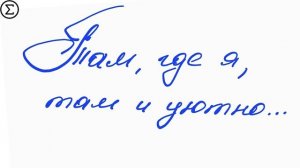 Σ
Там, где я,
там и уютно...